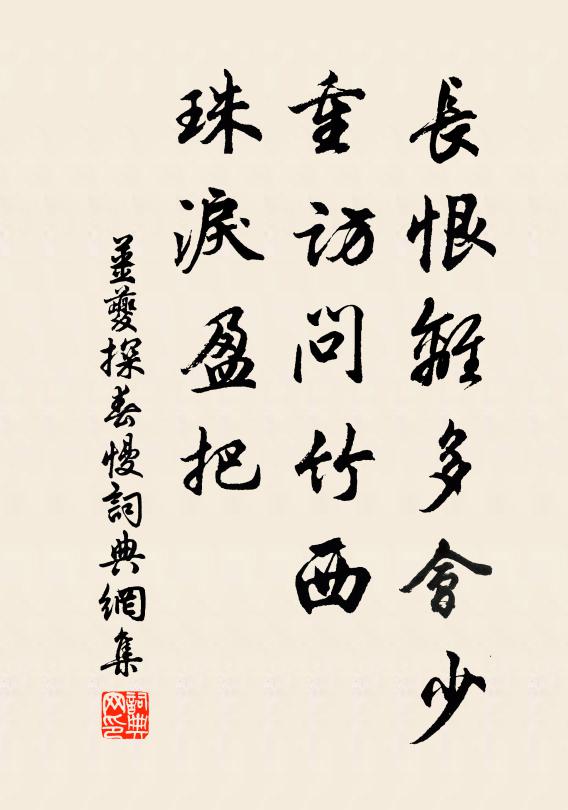 長恨離多會少
重訪問竹西
珠淚盈把
姜夔探春慢詞典網集
詞典网印